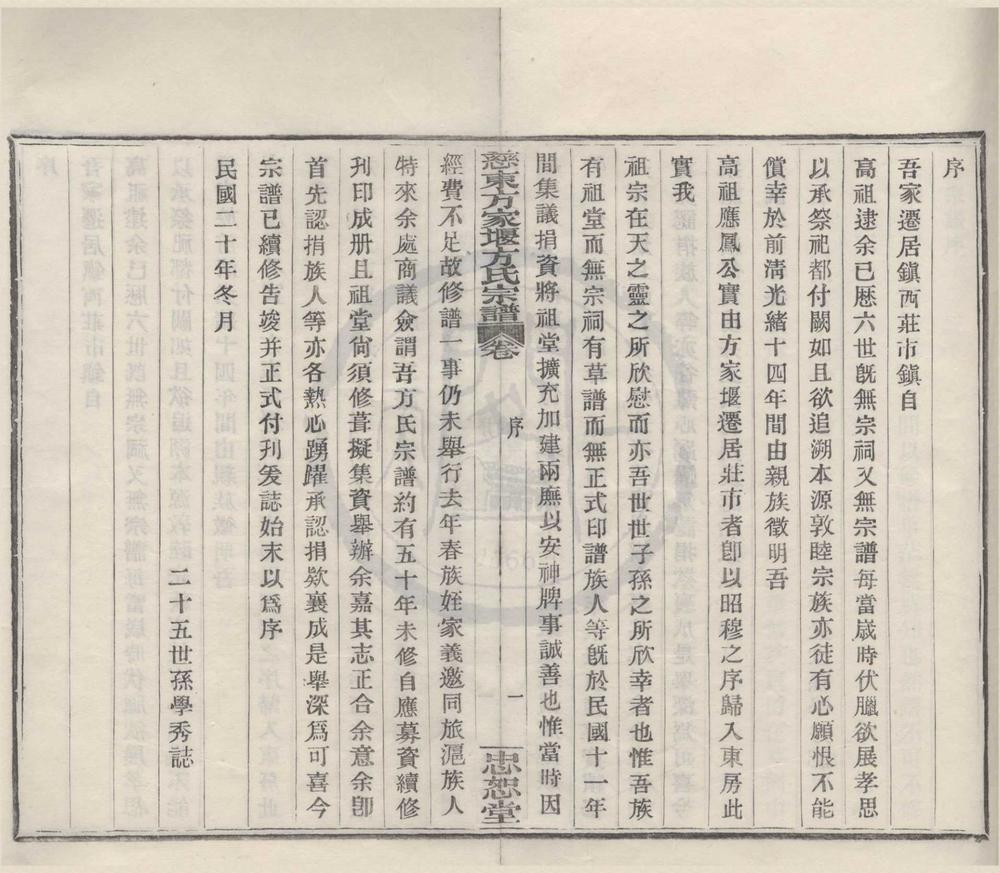 序
吾家遷居鎮西莊市鎮自
高祖逮余已厯六世旣無宗祠又無宗譜每當歲時伏臘欲展孝思
以承祭祀都付闕如且欲追溯本源敦睦宗族亦徒有心願恨不能
償幸於前淸光緒十四年間由親族徵明吾
高祖應鳳公實由方家堰遷居莊市者卽以昭穆之序歸入東房此
實我
祖宗在天之靈之所欣慰而亦吾世世子孫之所欣幸者也惟吾族
有祖堂而無宗祠有草譜而無正式印譜族人等旣於民國十一年
間集議捐資將祖堂擴充加建兩廡以安神牌事誠善也惟當時因
慈東方家堰方氏宗譜 卷 序 一 忠恕堂
經費不足故修譜一事仍未舉行去年春族姪家義邀同旅滬族人
特來余處商議僉謂吾方氏宗譜約有五十年未修自應募資續修
刋印成册且祖堂尙須修葺擬集資舉辦余嘉其志正合余意余卽
首先認捐族人等亦各熱心踴躍承認捐欵襄成是舉深爲可喜今
宗譜已續修告竣并正式付刋爰誌始末以爲序
民國二十年冬月
二十五世孫學秀誌